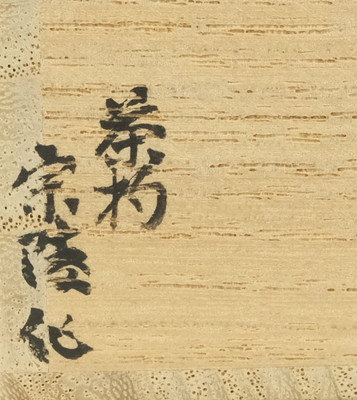 茶杓
宗陸作